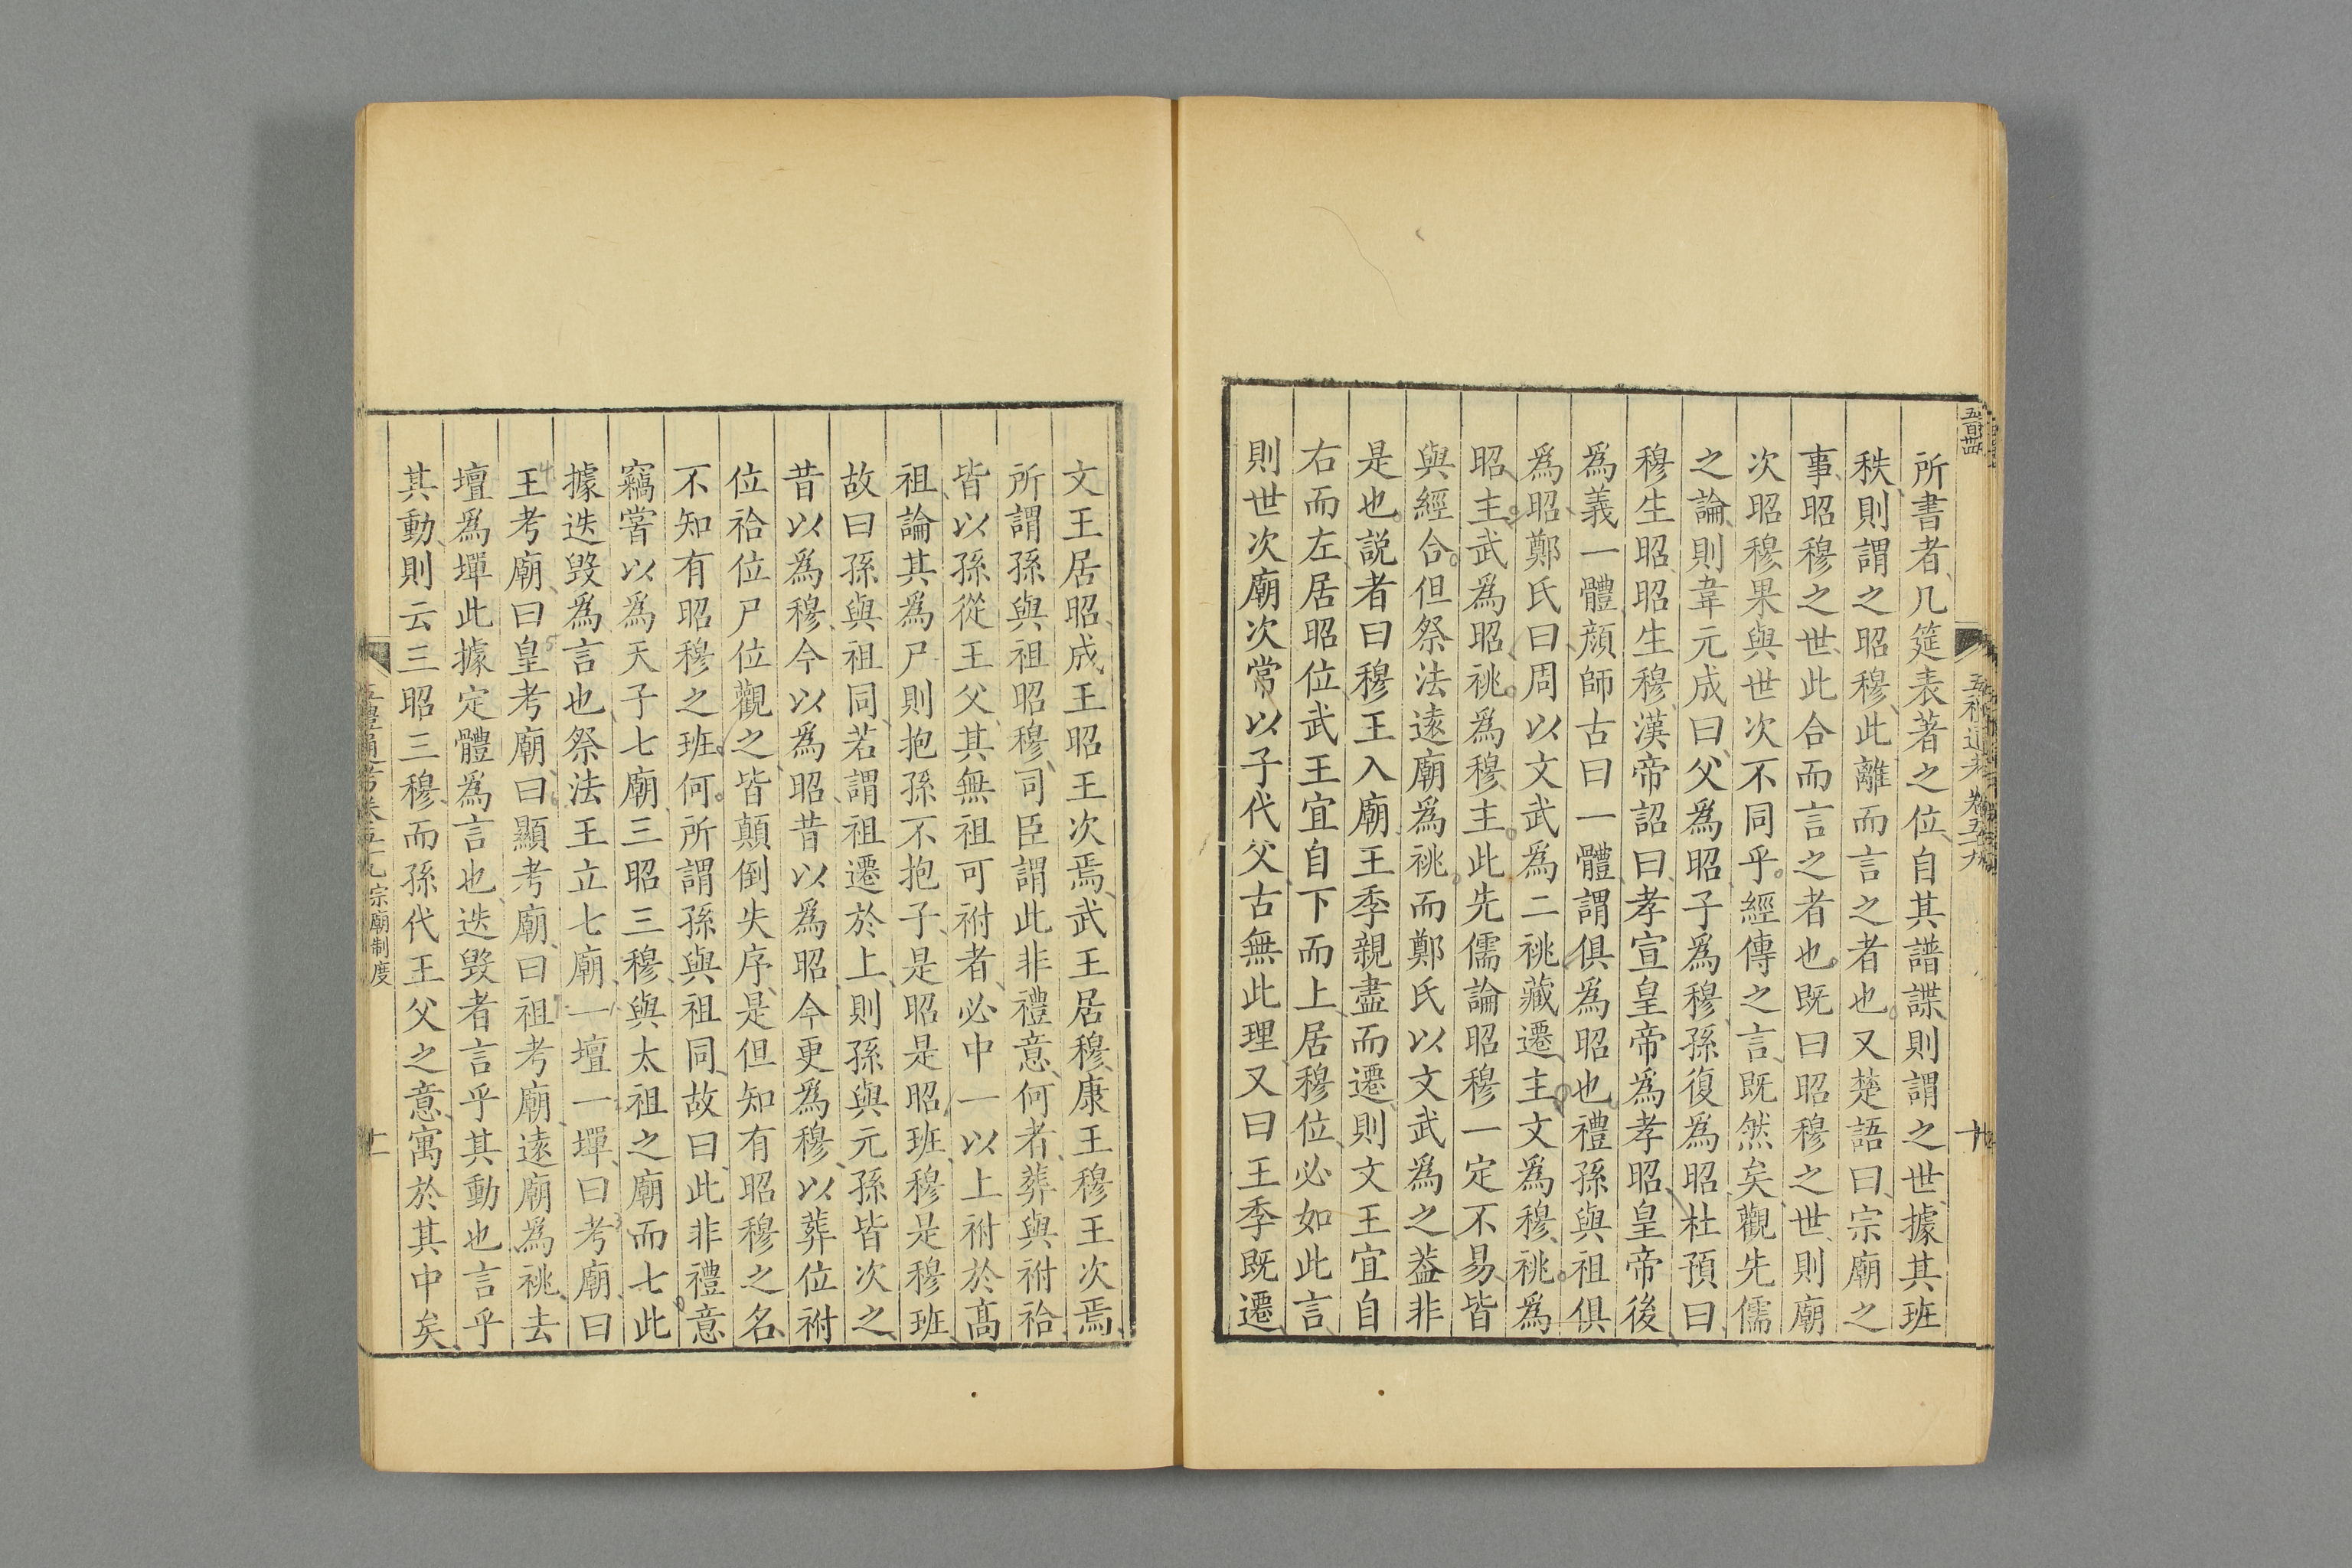 所書者几筵表著之位自其譜諜則謂之世據其班
秩則謂之昭穆此離而言之者也又楚語曰宗廟之
事昭穆之世此合而言之者也既曰昭穆之世則廟
次昭穆果與世次不同乎經傳之言既然矣觀先儒
之論則韋元成曰父爲昭子爲穆孫復爲昭杜預曰
穆生昭昭生穆漢帝詔曰孝宣皇帝爲孝昭皇帝後
爲義一體顔師古曰一體謂俱爲昭也禮孫與祖俱
爲昭鄭氏曰周以文武爲二祧藏遷主文爲穆祧爲
昭主武爲昭祧爲穆主此先儒論昭穆一定不易皆
與經合但祭法遠廟爲祧而鄭氏以文武爲之葢非
是也説者曰穆王入廟王季親盡而遷則文王宜自
右而左居昭位武王宜自下而上居穆位必如此言
則世次廟次常以子代父古無此理又曰王季既遷
文王居昭成王昭王次焉武王居穆康王穆王次焉
所謂孫與祖昭穆司臣謂此非禮意何者葬與祔祫
皆以孫從王父其無祖可祔者必中一以上祔於髙
祖論其爲尸則抱孫不抱子是昭是昭班穆是穆班
故曰孫與祖同若謂祖遷於上則孫與元孫皆次之
昔以爲穆今以爲昭昔以爲昭今更爲穆以葬位祔
位祫位尸位觀之皆顛倒失序是但知有昭穆之名
不知有昭穆之班何所謂孫與祖同故曰此非禮意
竊嘗以爲天子七廟三昭三穆與太祖之廟而七此
據迭毁爲言也祭法王立七廟一壇一墠曰考廟曰
王考廟曰皇考廟曰顯考廟曰祖考廟遠廟爲祧去
壇爲墠此據定體爲言也迭毁者言乎其動也言乎
其動則云三昭三穆而孫代王父之意寓於其中矣
宗廟制度